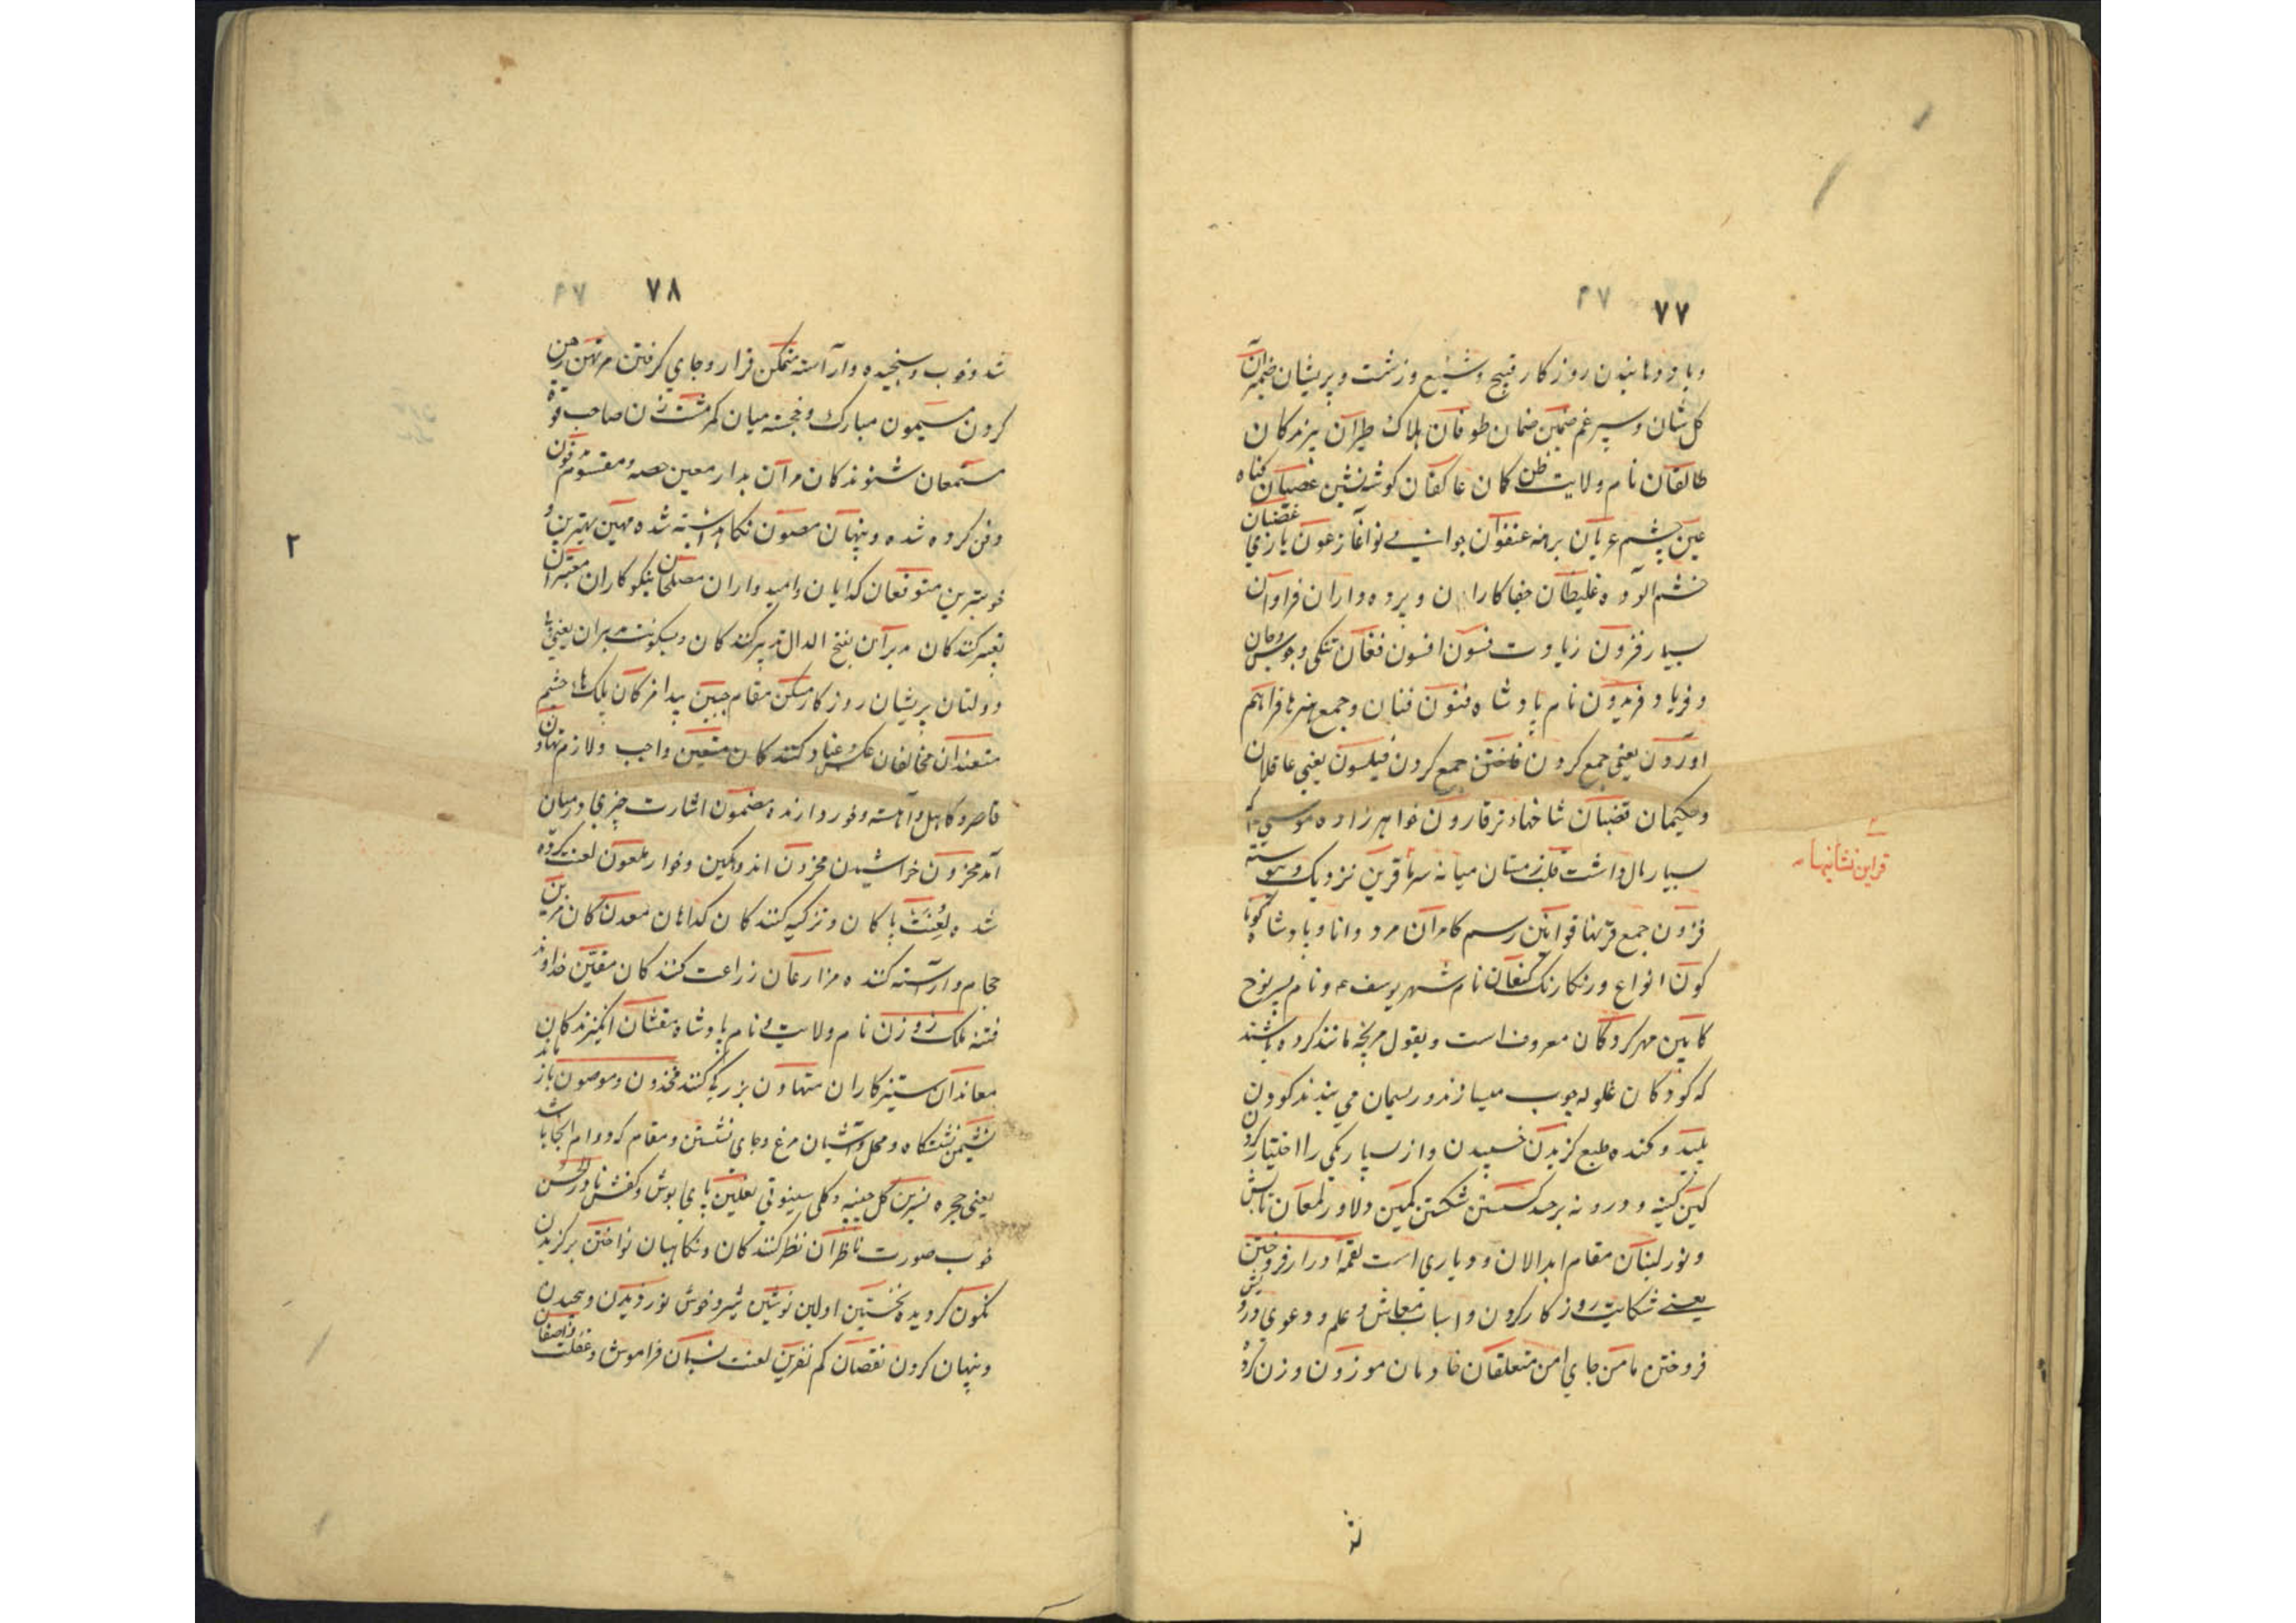 ۷۷
و باد و دهانیدن روزکار قبیح و شنیع و زشت و پریشان ضمیران
کل شان و سپرغم ضمین ضمان طوفان هلاک طیران پرندکان
طالقان نام ولایت ظن کان عاکفان کوشه نشین عصیان کناه
غضبان
عین چشم عریان برهنه عنفوان جوانی نوآغاز عون یاری
خشم آلوده غلیظان جفاکاران و پرده داران فراوان
بسیار فزون زیادت فسون افسون فغان تنکی و جوش و جان
و فریاد فریدون نام پادشاه فنون فنان و جمع هنرها فراهم
آوردن یعنی جمع کردن جمع کردن فیلسون یعنی عاقلان
و حکیمان قضبان شاخهاء تر قارون خواهرزاده موسی که
بسیار مال داشت قلب زمستان میانه سرما قرین نزدیک و پیوسته
قراین نشانیها
قرون جمع قرنها قوانین رسم کامران مرد دانا و پادشاه
کون انواع و رنکارنک کنعان نام شهر یوسف ع و نام پسر نوح
کابین مهر کردکان معروف است و بقول مربخه مانند کرده باشند
که کودکان غلوله چوب میسازند و ریسمان می بندند کودن
پلید و کنده طبع کزیدن خسپیدن و از بسیار یکی را اختیار کردن
کین کینه و درونه بر حد کسستن شکستن کمین دلاور لمعان تابش
و نور لبنان مقام ابدالان و دیاری است لقمه را در افروختن
یعنی شکایت روزکار کردن و اسباب معاش و علم و دعوی دروغ
فروختن مامن جای امن متعلقان خادمان موزون وزن کرده
۷۸
شد و خوب و سنجیده و آراسته متمکن قرار و جای کرفتن مرتهن رهن
کردن میمون مبارک و خجسته میان کمر مشت زن صاحب قوة
مستمعان شنوندکان مران بدار معین حصه و مقسوم مدفون
دفن کرده شده و پنهان مصون نکاهداشته شده مهین بهترین و
خوبترین متوقعان کدایان و امیدواران مصلحان نیکوکاران معتبران
تعبیر کنندکان مدبران بفتح الدال تدبیر کنندکان و بسکونت مدبران یعنی بی
دولتان پریشان روزکار مسکن مقام مبین پیدا مژکان پلک هاء چشم
متعندان مخالفان عکس و عناد کنندکان متعین واجب و لازم متهاون
قاصر و کاهل و آهسته و خوردارنده مضمون اشارت چیزی درمیان
آمد مخزون خراشیدن محزون اندوهکین و خوار ملعون لعنت کرده
شده لعنت پاکان و تزکیه کنندکان کداهان معدن کان مزین
حجام و آراسته کننده مزارعان زراعت کنندکان مفتن خداوند
فتنه ملک زوزن نام ولایت و نام پادشاه مفتنان انکیزندکان
معاندان ستیزکاران متهاون بزرکی کنند مخزون و موصون باز ماند
نشیمن نشستکاه و محل و آشیان مرغ و جای نشستن و مقام که دوام انجا باشد
یعنی حجره نسرین کل چینه و کلی سینوتی نعلین پای پوش و کفش نادر الحسن
خوب صورت ناظران نظر کنندکان و نکاهبان نواختن برکزیدن
نکون کردیده نخستین اولین نوشین شیر و خوش نوردیدن و پیچیدن
و پنهان کردن نقصان کم نفرین لعنت نسیان فراموش و غفلت
۲